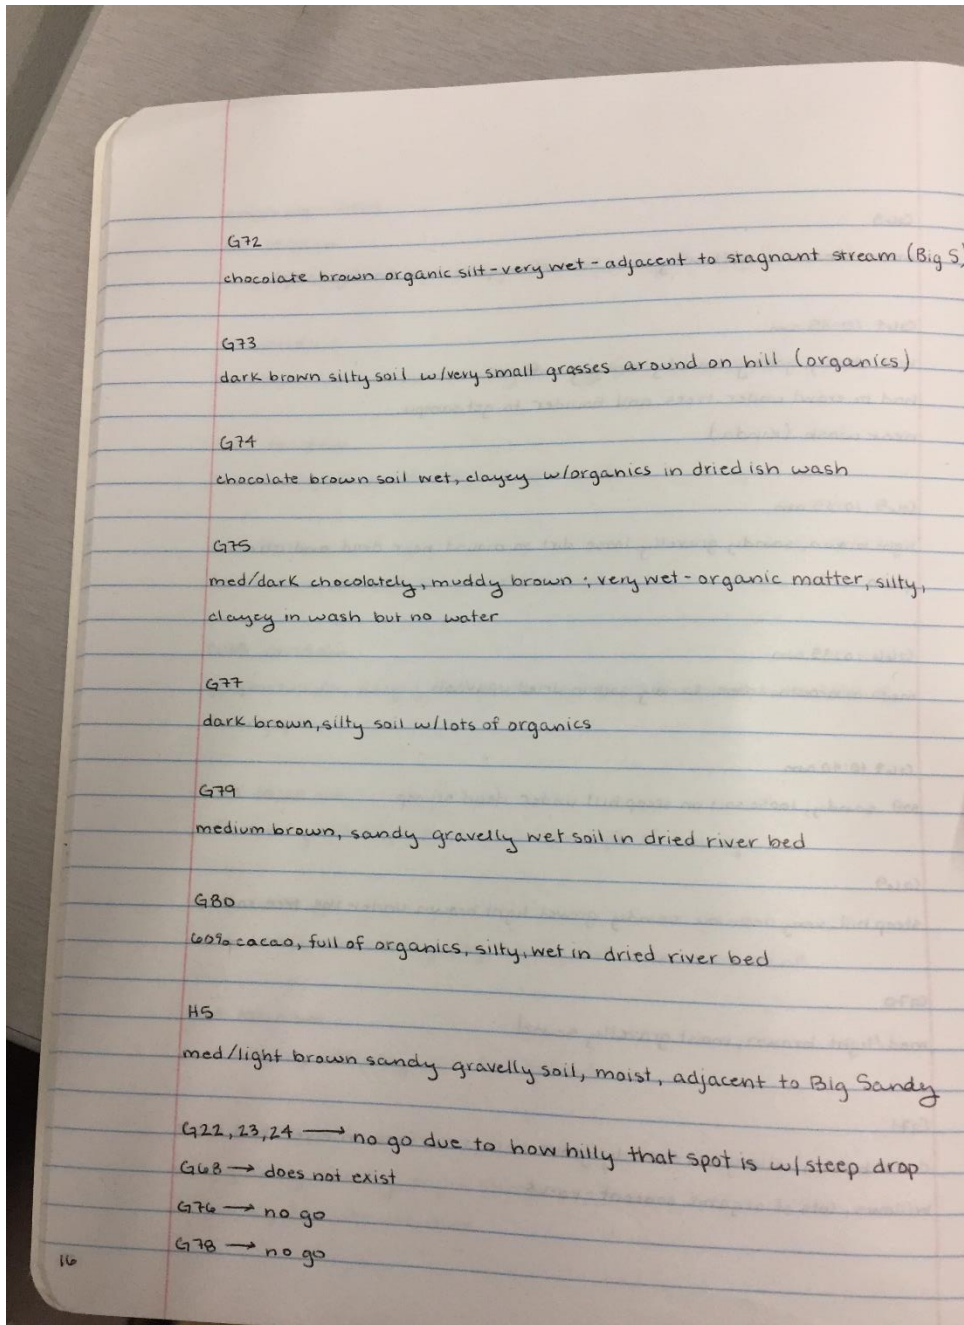 G72
chocolate brown organic silt-very wet-adjacent to stagnant stream (Big S)
G73
dark brown silty soil w/very small grasses around on hill (organics)
G74
chocolate brown soil wet, clayey w/organics in dried ish wash
G75
med/dark chocolately, muddy brown; very wet-organic matter, silty,
clayey in wash but no water
G77
dark brown, silty soil w/lots of organics
G79
medium brown, sandy gravelly wet soil in dried river bed
G80
60% cacao, full of organics, silty, wet in dried river bed
H5
med/light brown sandy gravelly soil, moist, adjacent to Big Sandy
G22, 23, 24 → no go due to how hilly that spot is w/ steep drop
G68 → does not exist
G76 → no go
G78 → no go
16